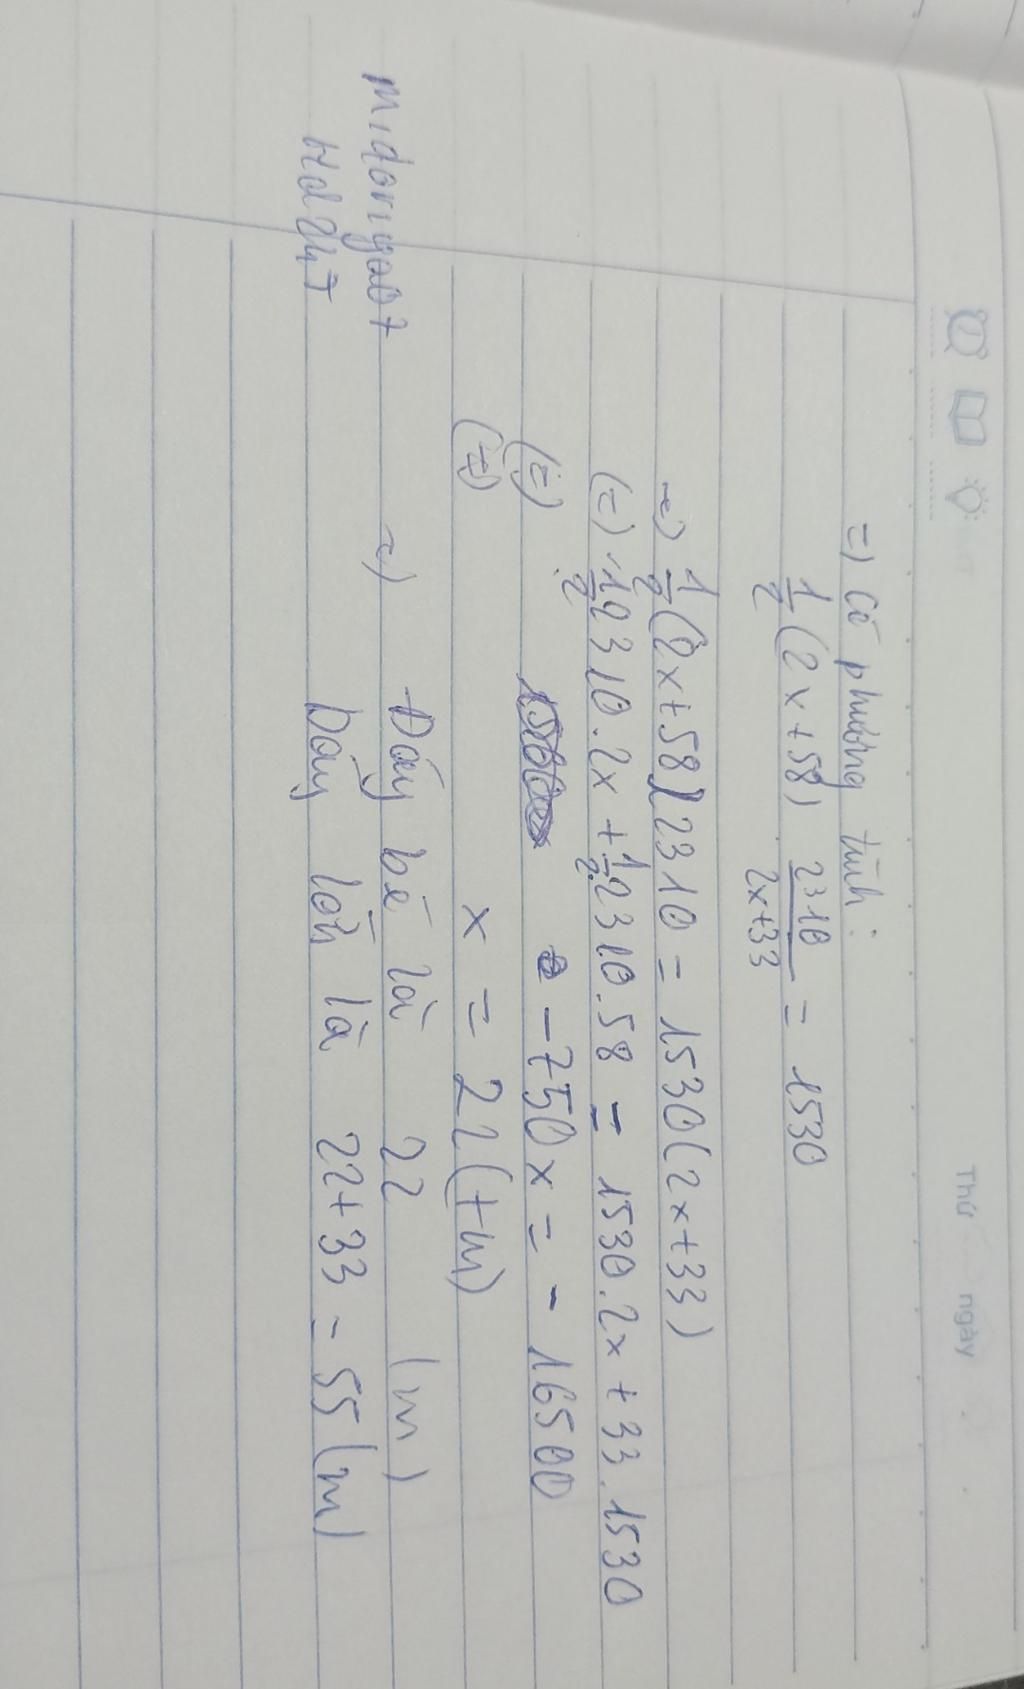 Thứ ngày
=) Có phương trình:
1/2 (2x+58) 2310/2x+33 = 1530
=) 1/2 (2x+58) 2310 = 1530(2x+33)
(=) 1/2 2310.2x + 1/2 2310.58 = 1530.2x + 33.1530
(=) -750x = -16500
(=) x = 22 (+m)
midoriya07 =) Đáy bé là 22 (m)
Đáy lớn là 22+33 = 55 (m)